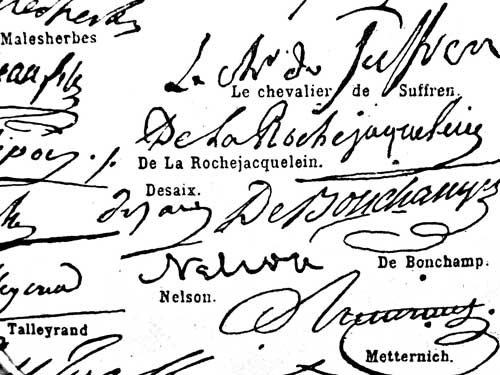 Malesherbes
Le Chr de Suffren
Le chevalier de Suffren.
De La Rochejaquelein
De La Rochejacquelein.
Desaix.
Desaix
De Bonchamps
De Bonchamp.
Nelson
Nelson.
Talleyrand
Metternich
Metternich.